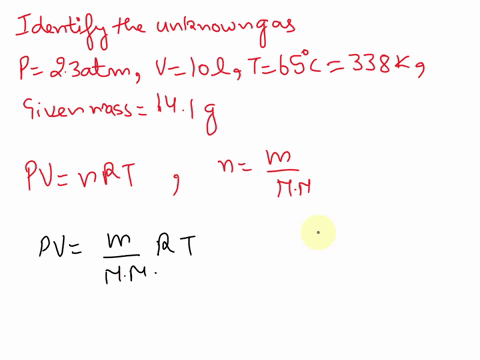 Identify the unknown gas
P= 2.3atm, V=10l, T=65°C = 338K,
Given mass = 14.1 g
PV= nRT , n= m/M.M
PV= m/M.M. RT